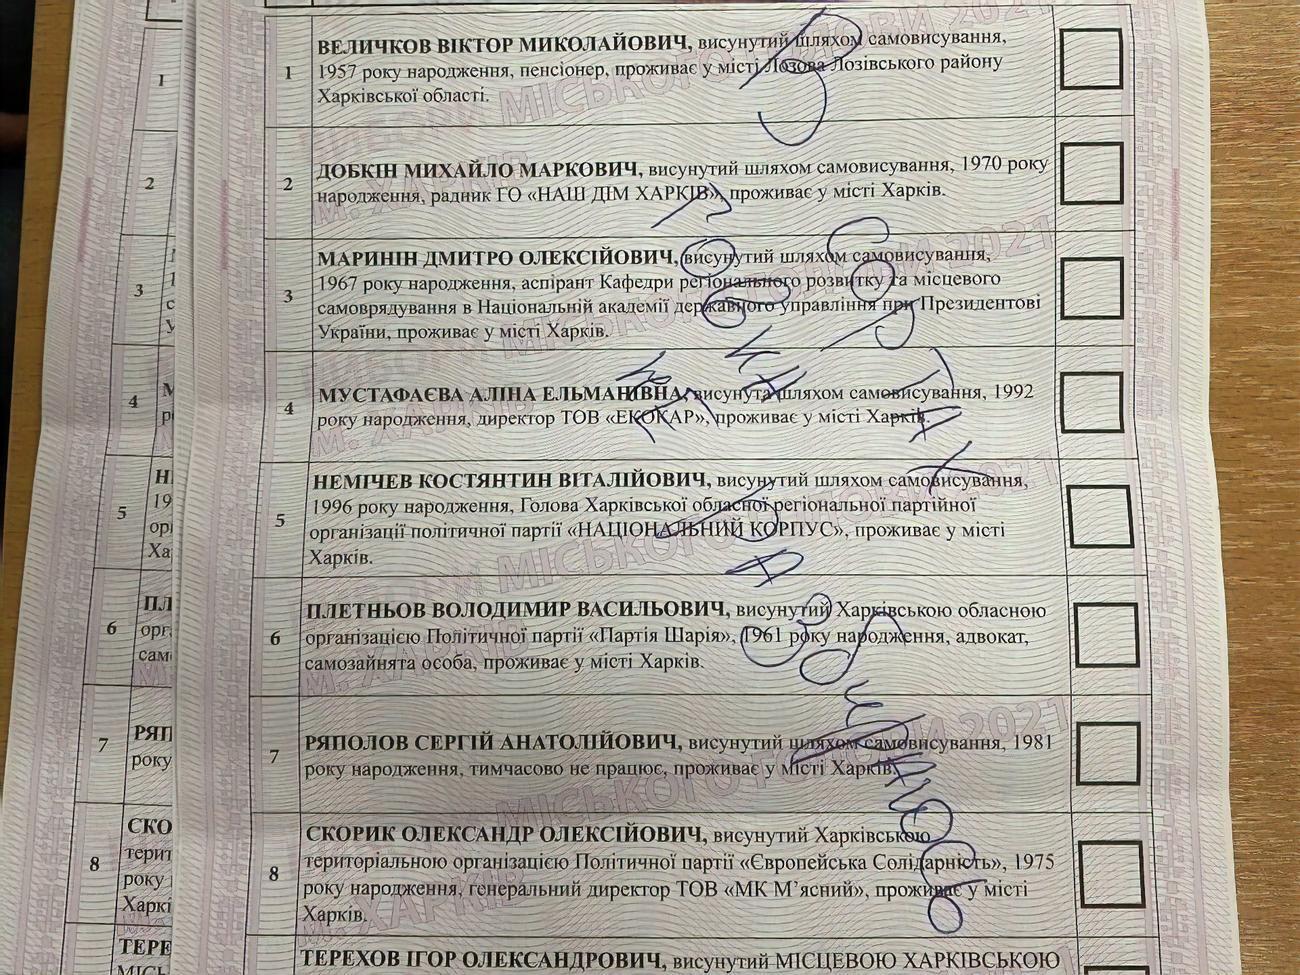 1
ВЕЛИЧКОВ ВІКТОР МИКОЛАЙОВИЧ, висунутий шляхом самовисування,
1957 року народження, пенсіонер, проживає у місті Лозова Лозівського району
Харківської області.
2
ДОБКІН МИХАЙЛО МАРКОВИЧ, висунутий шляхом самовисування, 1970 року
народження, радник ГО «НАШ ДІМ ХАРКІВ», проживає у місті Харків.
3
МАРИНІН ДМИТРО ОЛЕКСІЙОВИЧ, висунутий шляхом самовисування,
1967 року народження, аспірант Кафедри регіонального розвитку та місцевого
самоврядування в Національній академії державного управління при Президентові
України, проживає у місті Харків.
4
МУСТАФАЄВА АЛІНА ЕЛЬМАНІВНА, висунута шляхом самовисування, 1992
року народження, директор ТОВ «ЕКОКАР», проживає у місті Харків.
5
НЕМІЧЕВ КОСТЯНТИН ВІТАЛІЙОВИЧ, висунутий шляхом самовисування,
1996 року народження, Голова Харківської обласної регіональної партійної
організації політичної партії «НАЦІОНАЛЬНИЙ КОРПУС», проживає у місті
Харків.
6
ПЛЕТНЬОВ ВОЛОДИМИР ВАСИЛЬОВИЧ, висунутий Харківською обласною
організацією Політичної партії «Партія Шарія», 1961 року народження, адвокат,
самозайнята особа, проживає у місті Харків.
7
РЯПОЛОВ СЕРГІЙ АНАТОЛІЙОВИЧ, висунутий шляхом самовисування, 1981
року народження, тимчасово не працює, проживає у місті Харків.
8
СКОРИК ОЛЕКСАНДР ОЛЕКСІЙОВИЧ, висунутий Харківською
територіальною організацією Політичної партії «Європейська Солідарність», 1975
року народження, генеральний директор ТОВ «МК М’ясний», проживає у місті
Харків.
ТЕРЕХОВ ІГОР ОЛЕКСАНДРОВИЧ, висунутий МІСЦЕВОЮ ХАРКІВСЬКОЮ